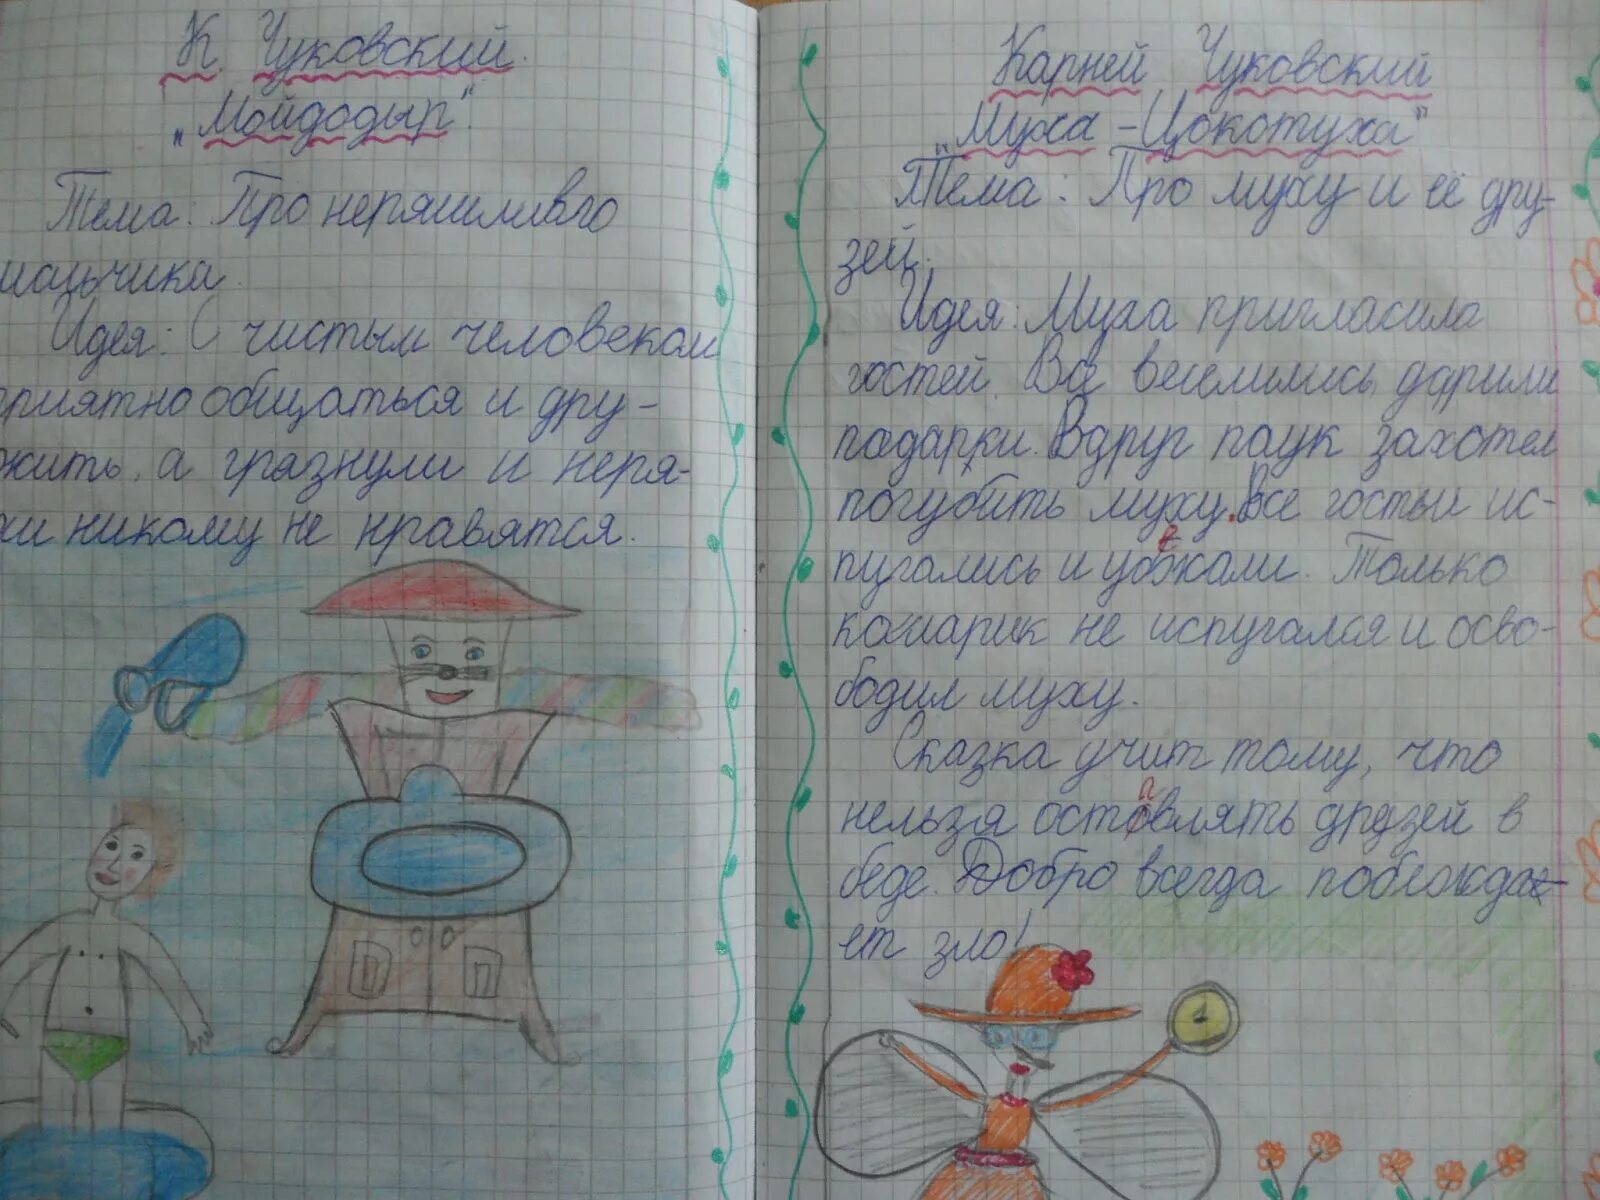 К. Чуковский.
„Мойдодыр".
Тема: Про неряшливго
мальчика.
Идея: С чистым человеком
приятно общаться и дру-
жить, а грязнули и неря-
хи никому не нравятся.
Карней Чуковский
„Муха-Цокотуха"
Тема: Про муху и её дру-
зей.
Идея: Муха пригласила
гостей. Все веселились, дарили
подарки. Вдруг паук захотел
погубить муху. Все гостьи ис-
пугались и убежали. Только
комарик не испугался и осво-
бодил муху.
Сказка учит тому, что
нельзя оставлять друзей в
беде. Добро всегда побеждa-
ет зло!